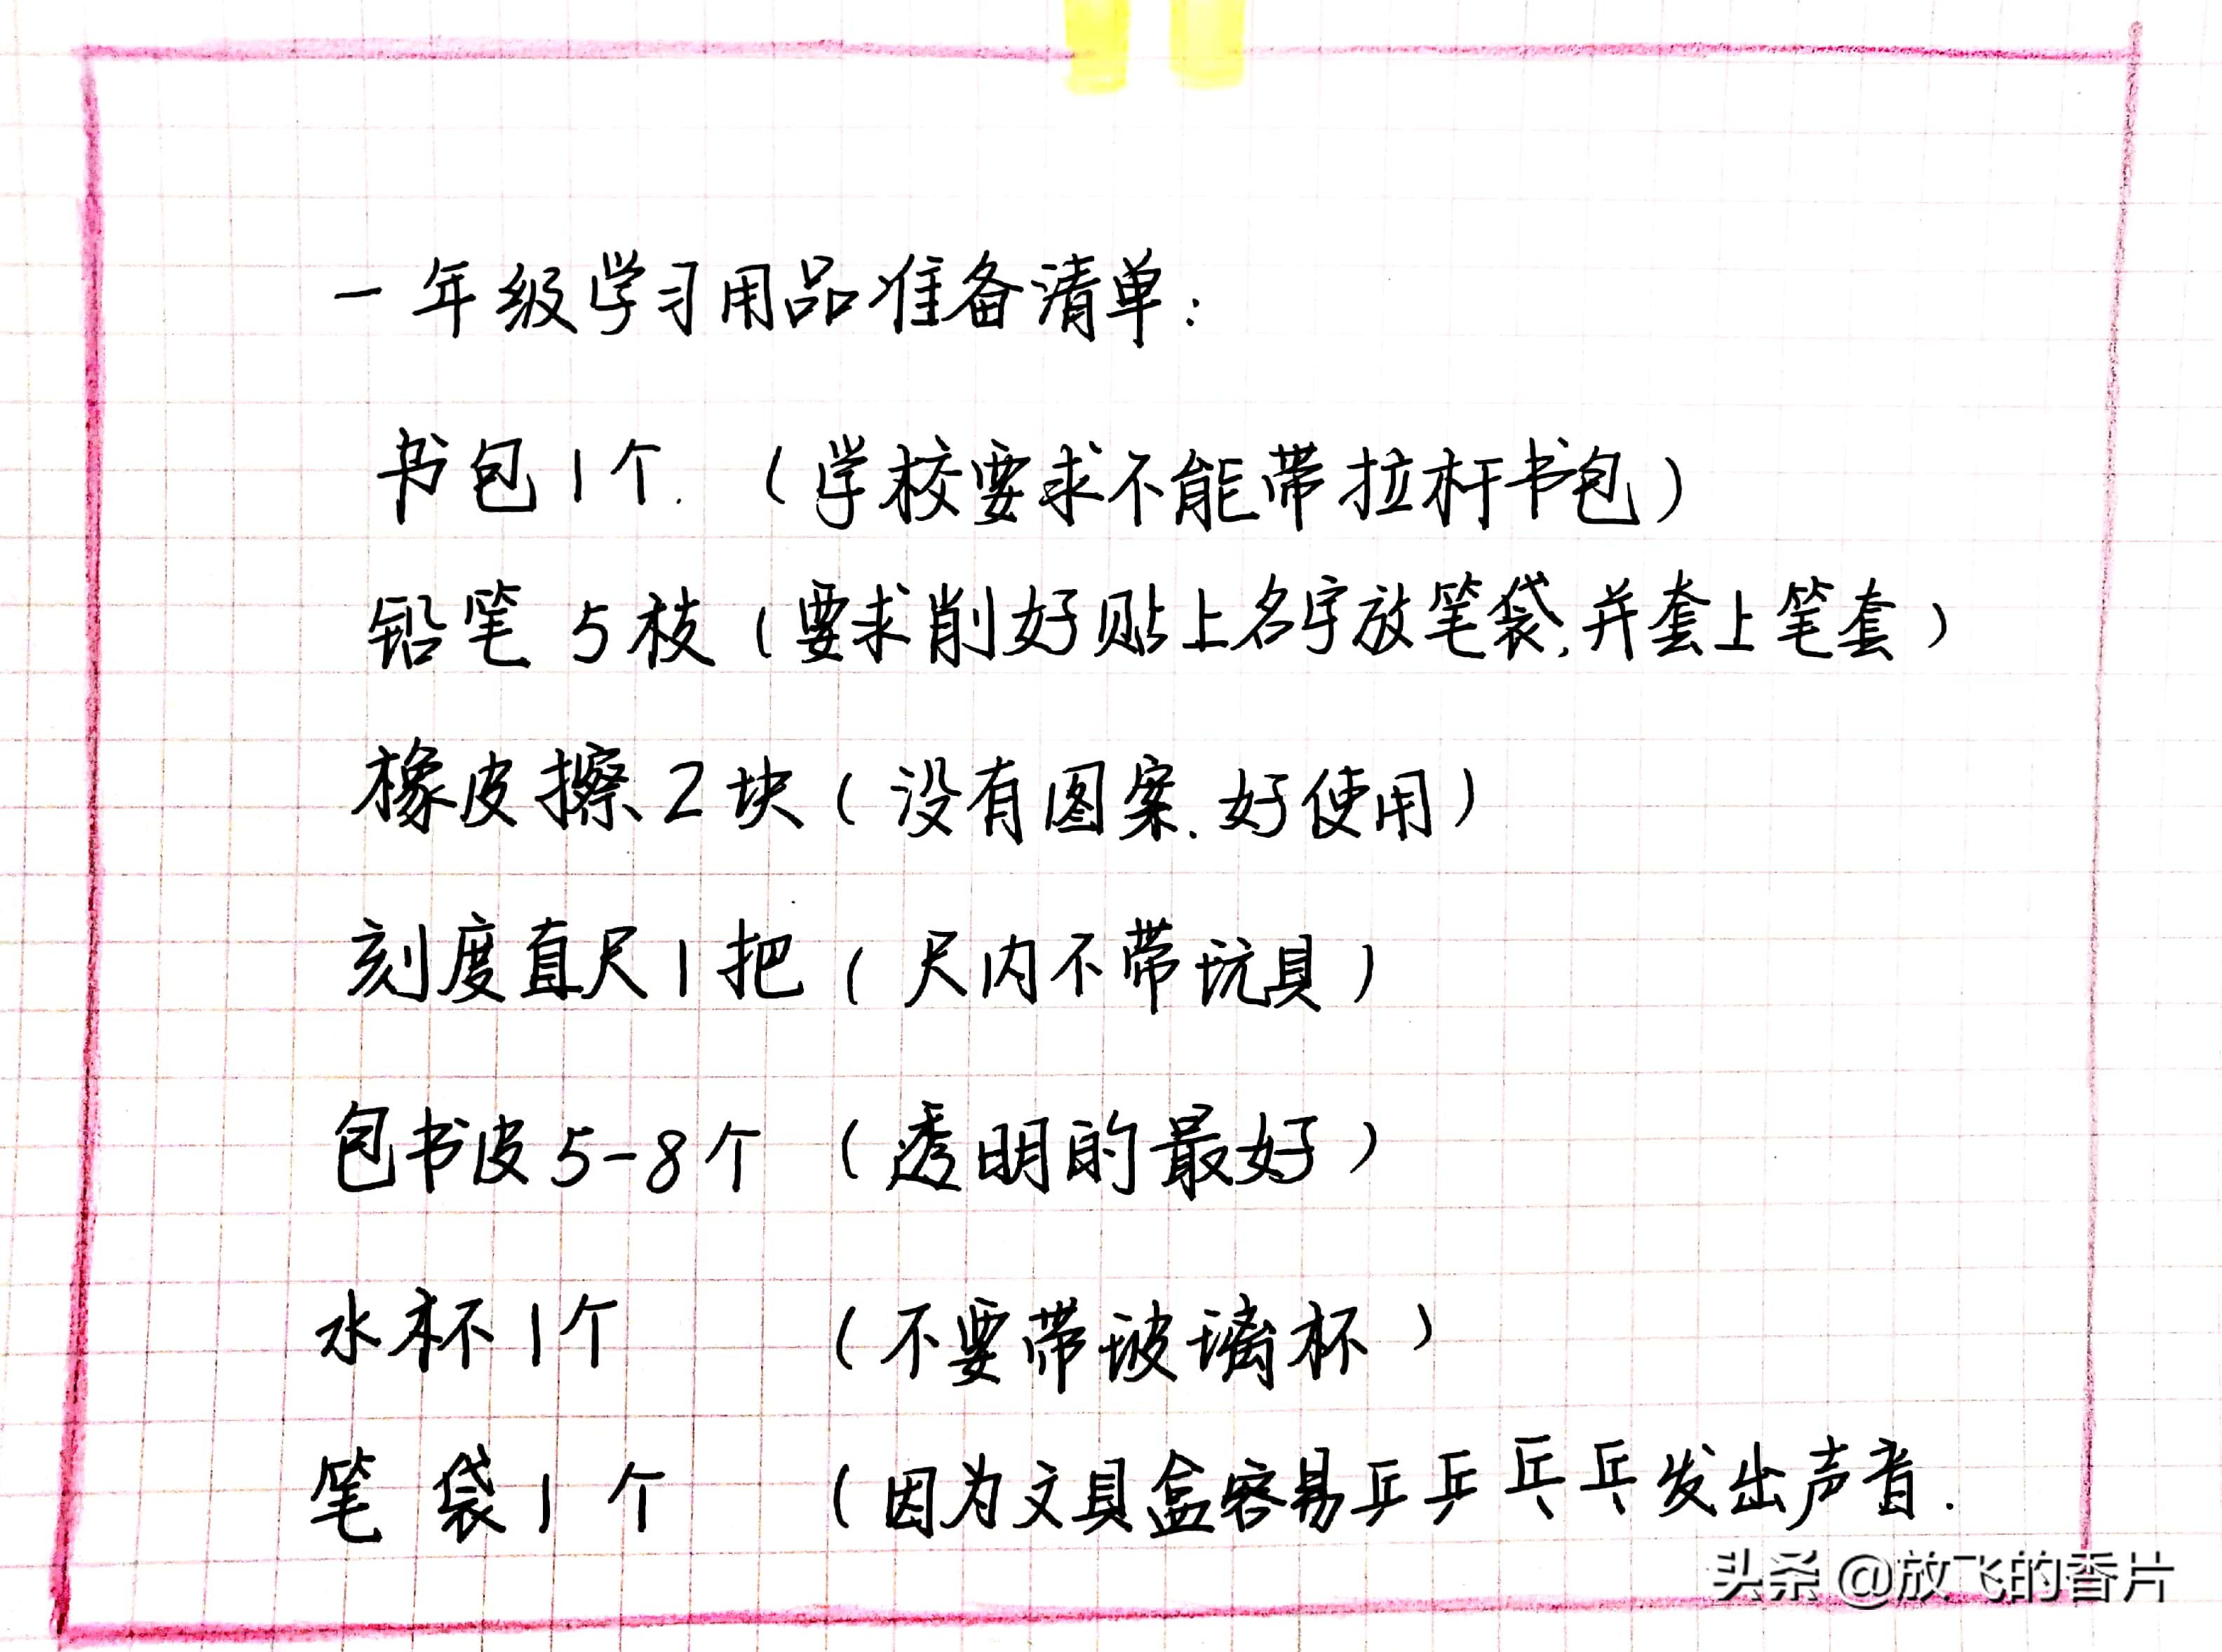 一年级学习用品准备清单：
书包1个.（学校要求不能带拉杆书包）
铅笔5枝（要求削好贴上名字放笔袋,并套上笔套）
橡皮擦2块（没有图案.好使用）
刻度直尺1把（尺内不带玩具）
包书皮5-8个（透明的最好）
水杯1个（不要带玻璃杯）
笔袋1个（因为文具盒容易乒乒乓乓发出声音.
头条@放飞的香片